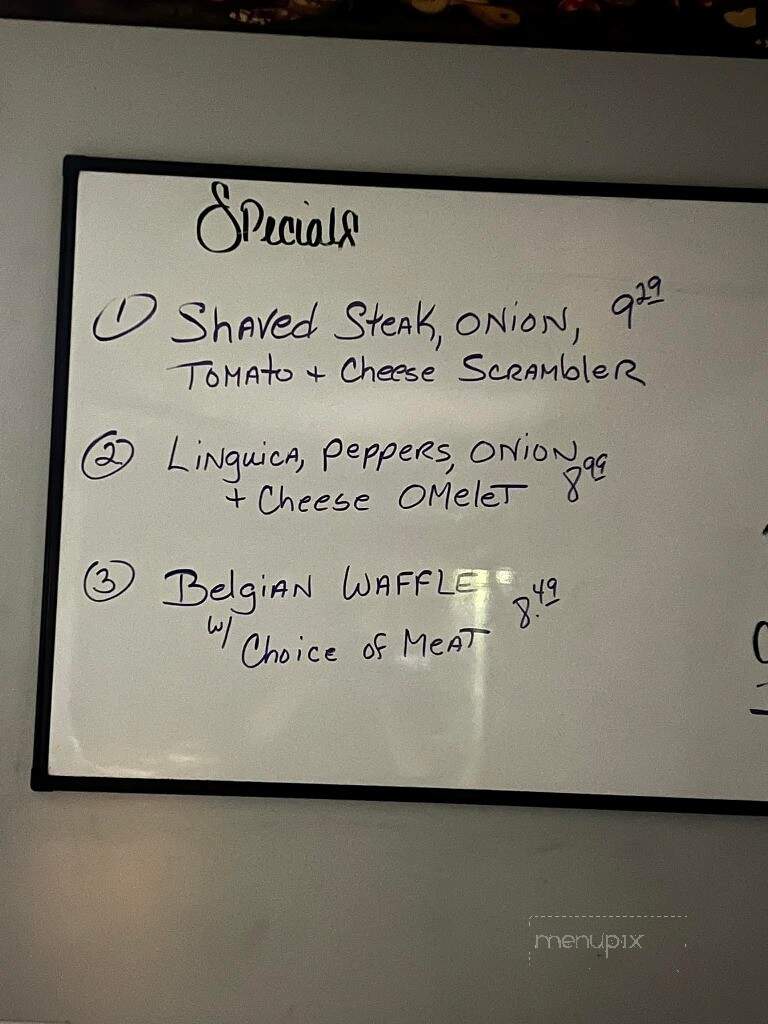 Specials
① Shaved Steak, Onion, 9 29
Tomato + Cheese Scrambler
② Linguica, Peppers, Onion
+ Cheese Omelet 8 99
③ Belgian Waffle
w/ Choice of Meat 8.49
menupix